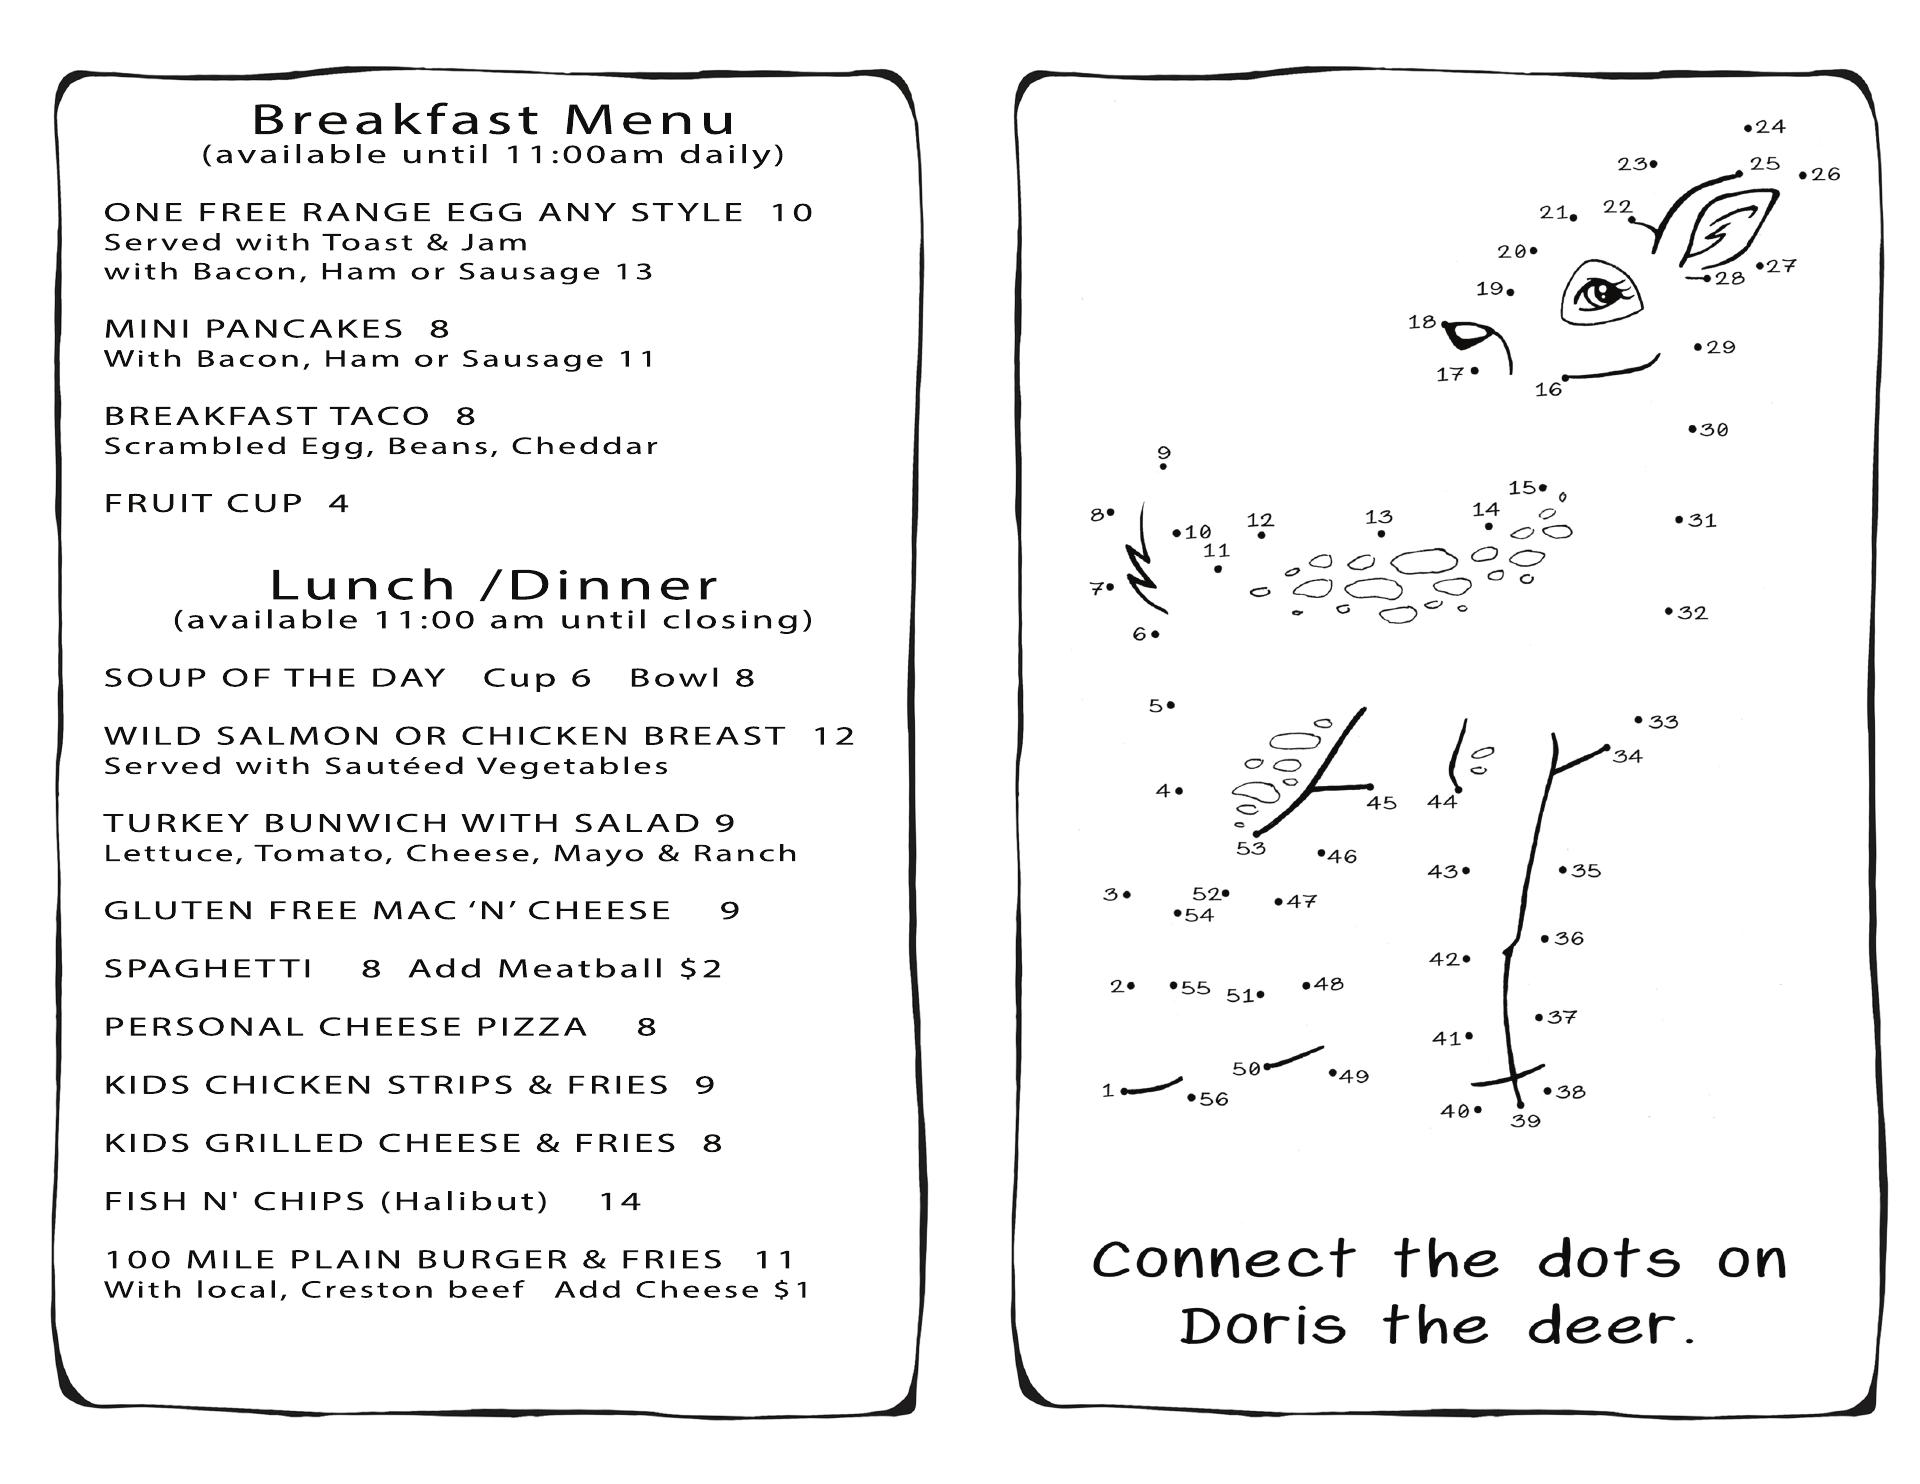 Breakfast Menu
(available until 11:00am daily)
ONE FREE RANGE EGG ANY STYLE 10
Served with Toast & Jam
with Bacon, Ham or Sausage 13
MINI PANCAKES 8
With Bacon, Ham or Sausage 11
BREAKFAST TACO 8
Scrambled Egg, Beans, Cheddar
FRUIT CUP 4
Lunch /Dinner
(available 11:00 am until closing)
SOUP OF THE DAY Cup 6 Bowl 8
WILD SALMON OR CHICKEN BREAST 12
Served with Sautéed Vegetables
TURKEY BUNWICH WITH SALAD 9
Lettuce, Tomato, Cheese, Mayo & Ranch
GLUTEN FREE MAC ‘N’ CHEESE 9
SPAGHETTI 8 Add Meatball $2
PERSONAL CHEESE PIZZA 8
KIDS CHICKEN STRIPS & FRIES 9
KIDS GRILLED CHEESE & FRIES 8
FISH N' CHIPS (Halibut) 14
100 MILE PLAIN BURGER & FRIES 11
With local, Creston beef Add Cheese $1
24
23 25 26
21 22
20 27
19 28
18
17 16 29
30
9
8 10 12 13 14 15 31
11
7
6 32
5 33
34
4 45 44
53 46 43 35
3 52 47
54
42 36
2 55 51 48
41 37
1 56 50 49 40 39 38
Connect the dots on
Doris the deer.